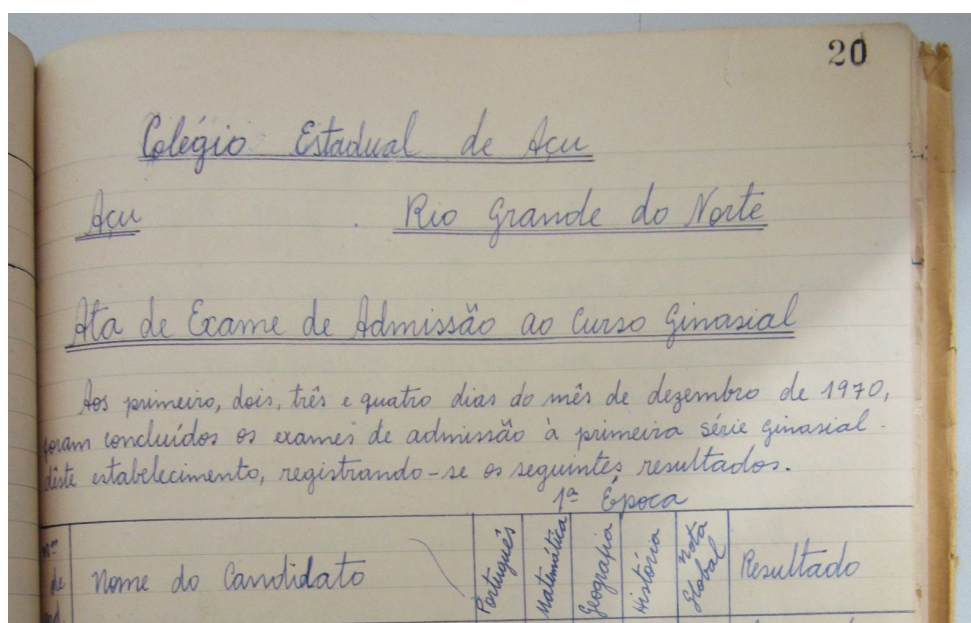 20
Colégio Estadual de Açu
Açu Rio Grande do Norte
Ata de Exame de Admissão ao Curso Ginasial
Aos primeiro, dois, três e quatro dias do mês de dezembro de 1970,
foram concluídos os exames de admissão à primeira série ginasial
dêste estabelecimento, registrando-se os seguintes resultados.
1ª Época
nº de Nome do Candidato Português Matemática Geografia História Nota Global Resultado